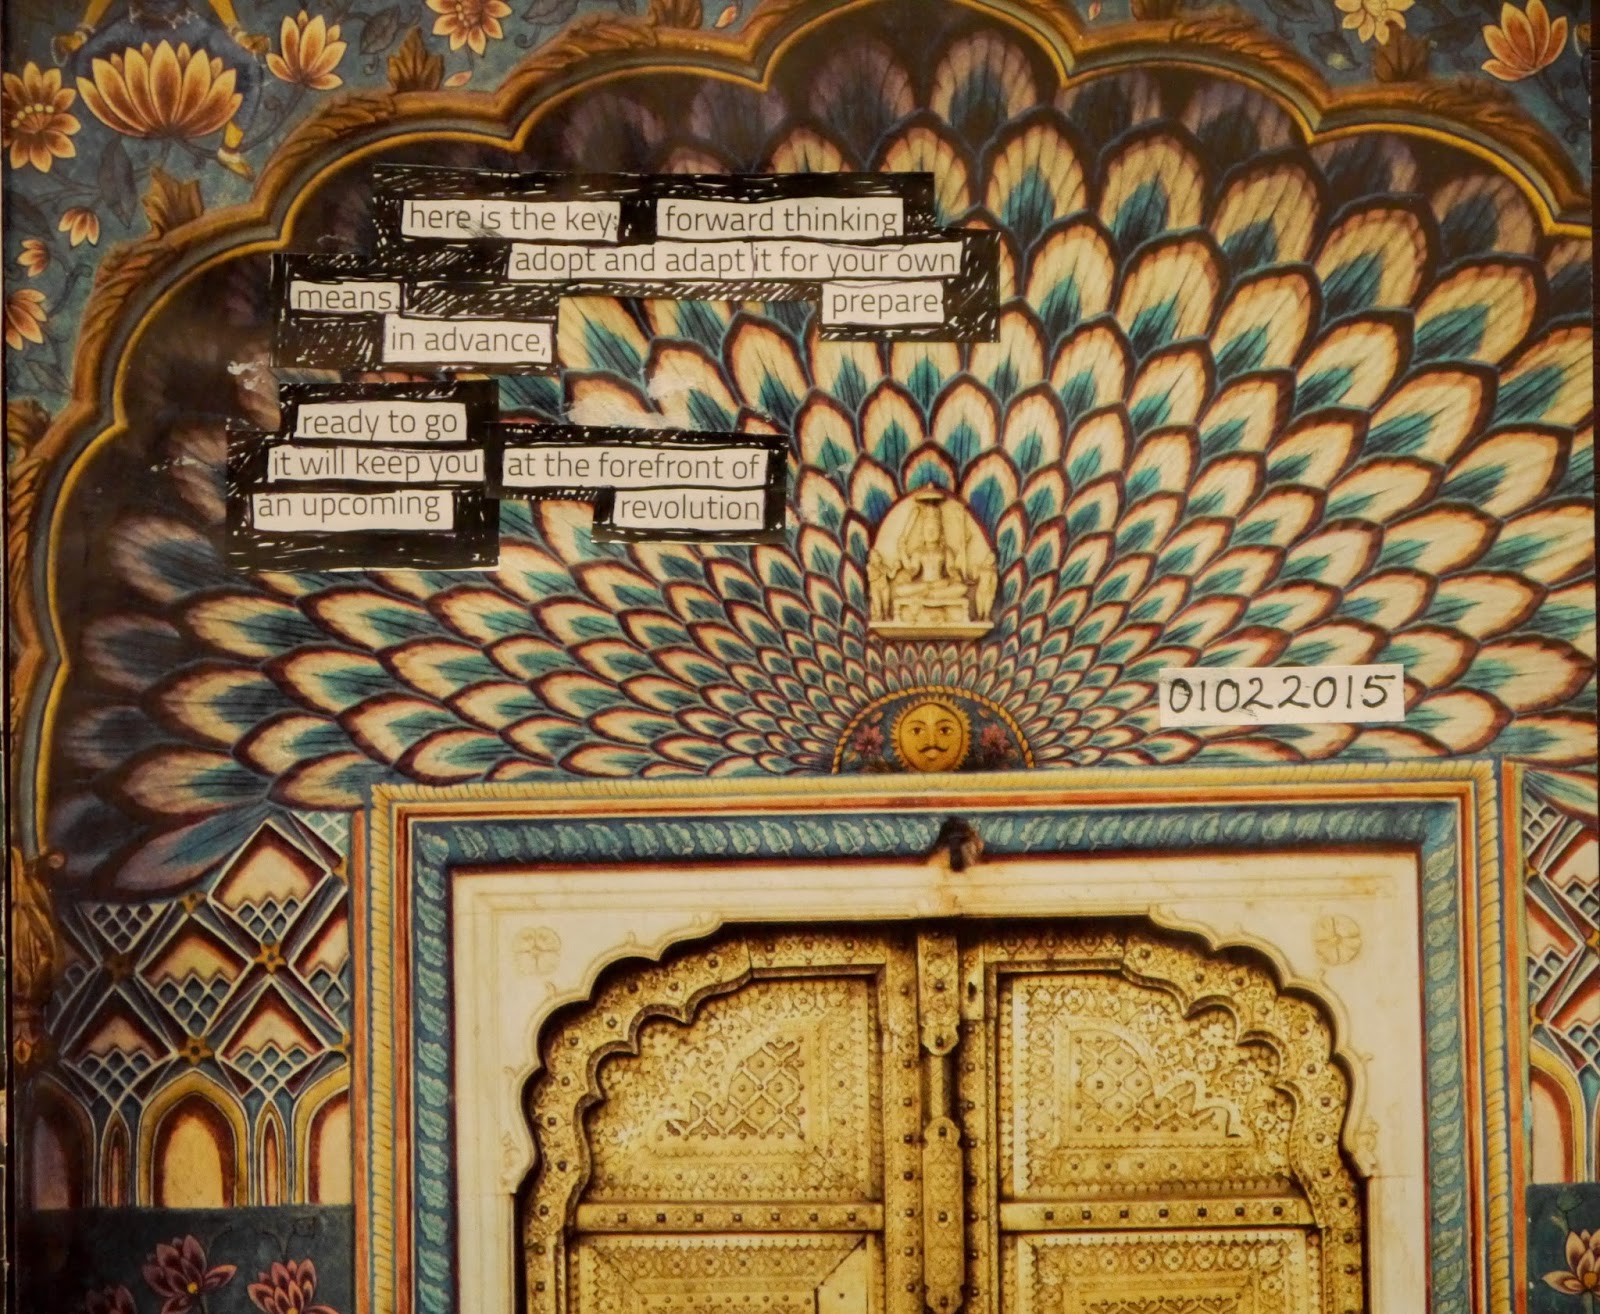 here is the key: forward thinking
adopt and adapt it for your own
means. prepare
in advance,
ready to go
it will keep you at the forefront of
an upcoming revolution
01022015